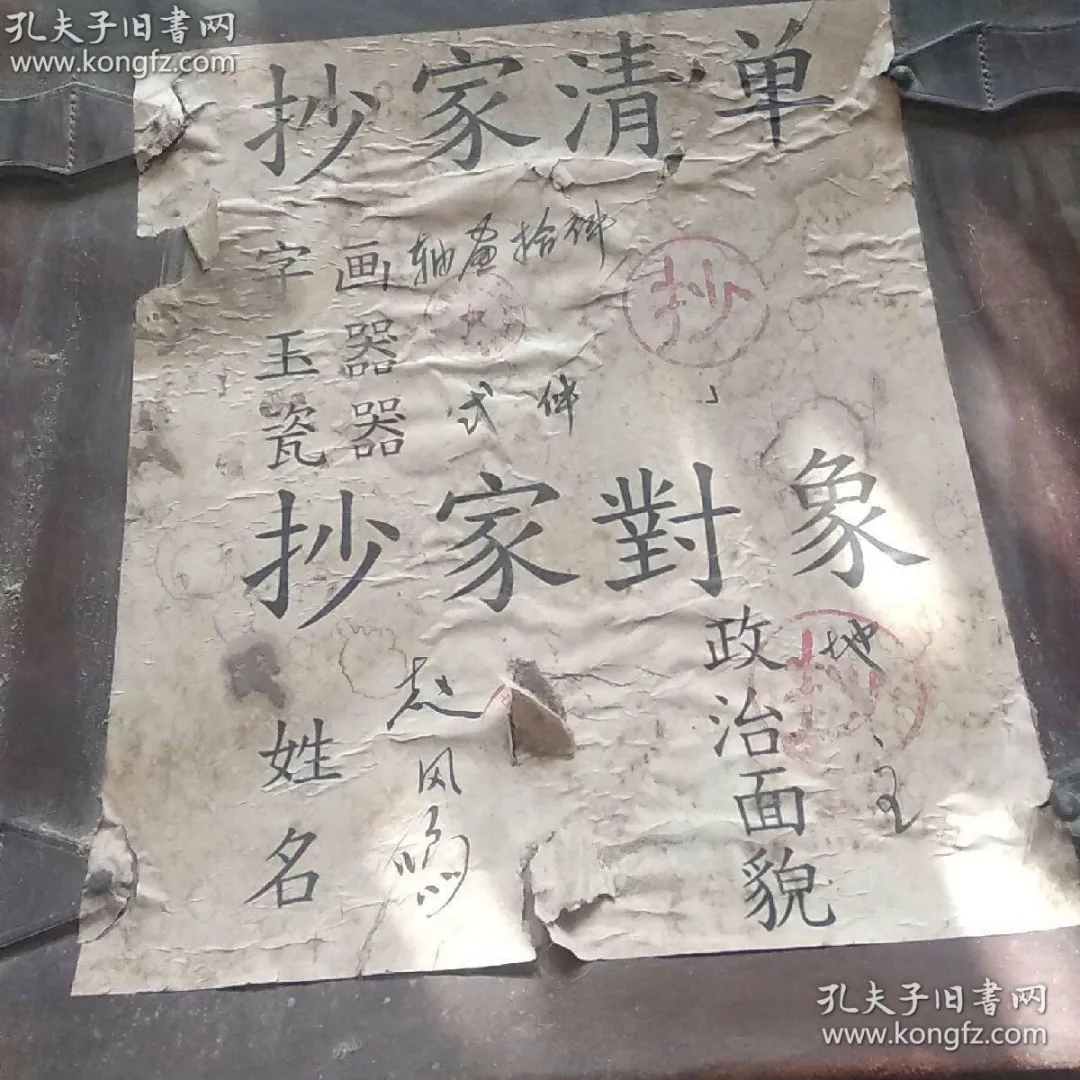 孔夫子旧书网
www.kongfz.com
抄家清单
字画 轴画拾件
抄
玉器
瓷器 弍件
抄家對象
姓名 赵风鸣
政治面貌 地主
抄
孔夫子旧书网
www.kongfz.com